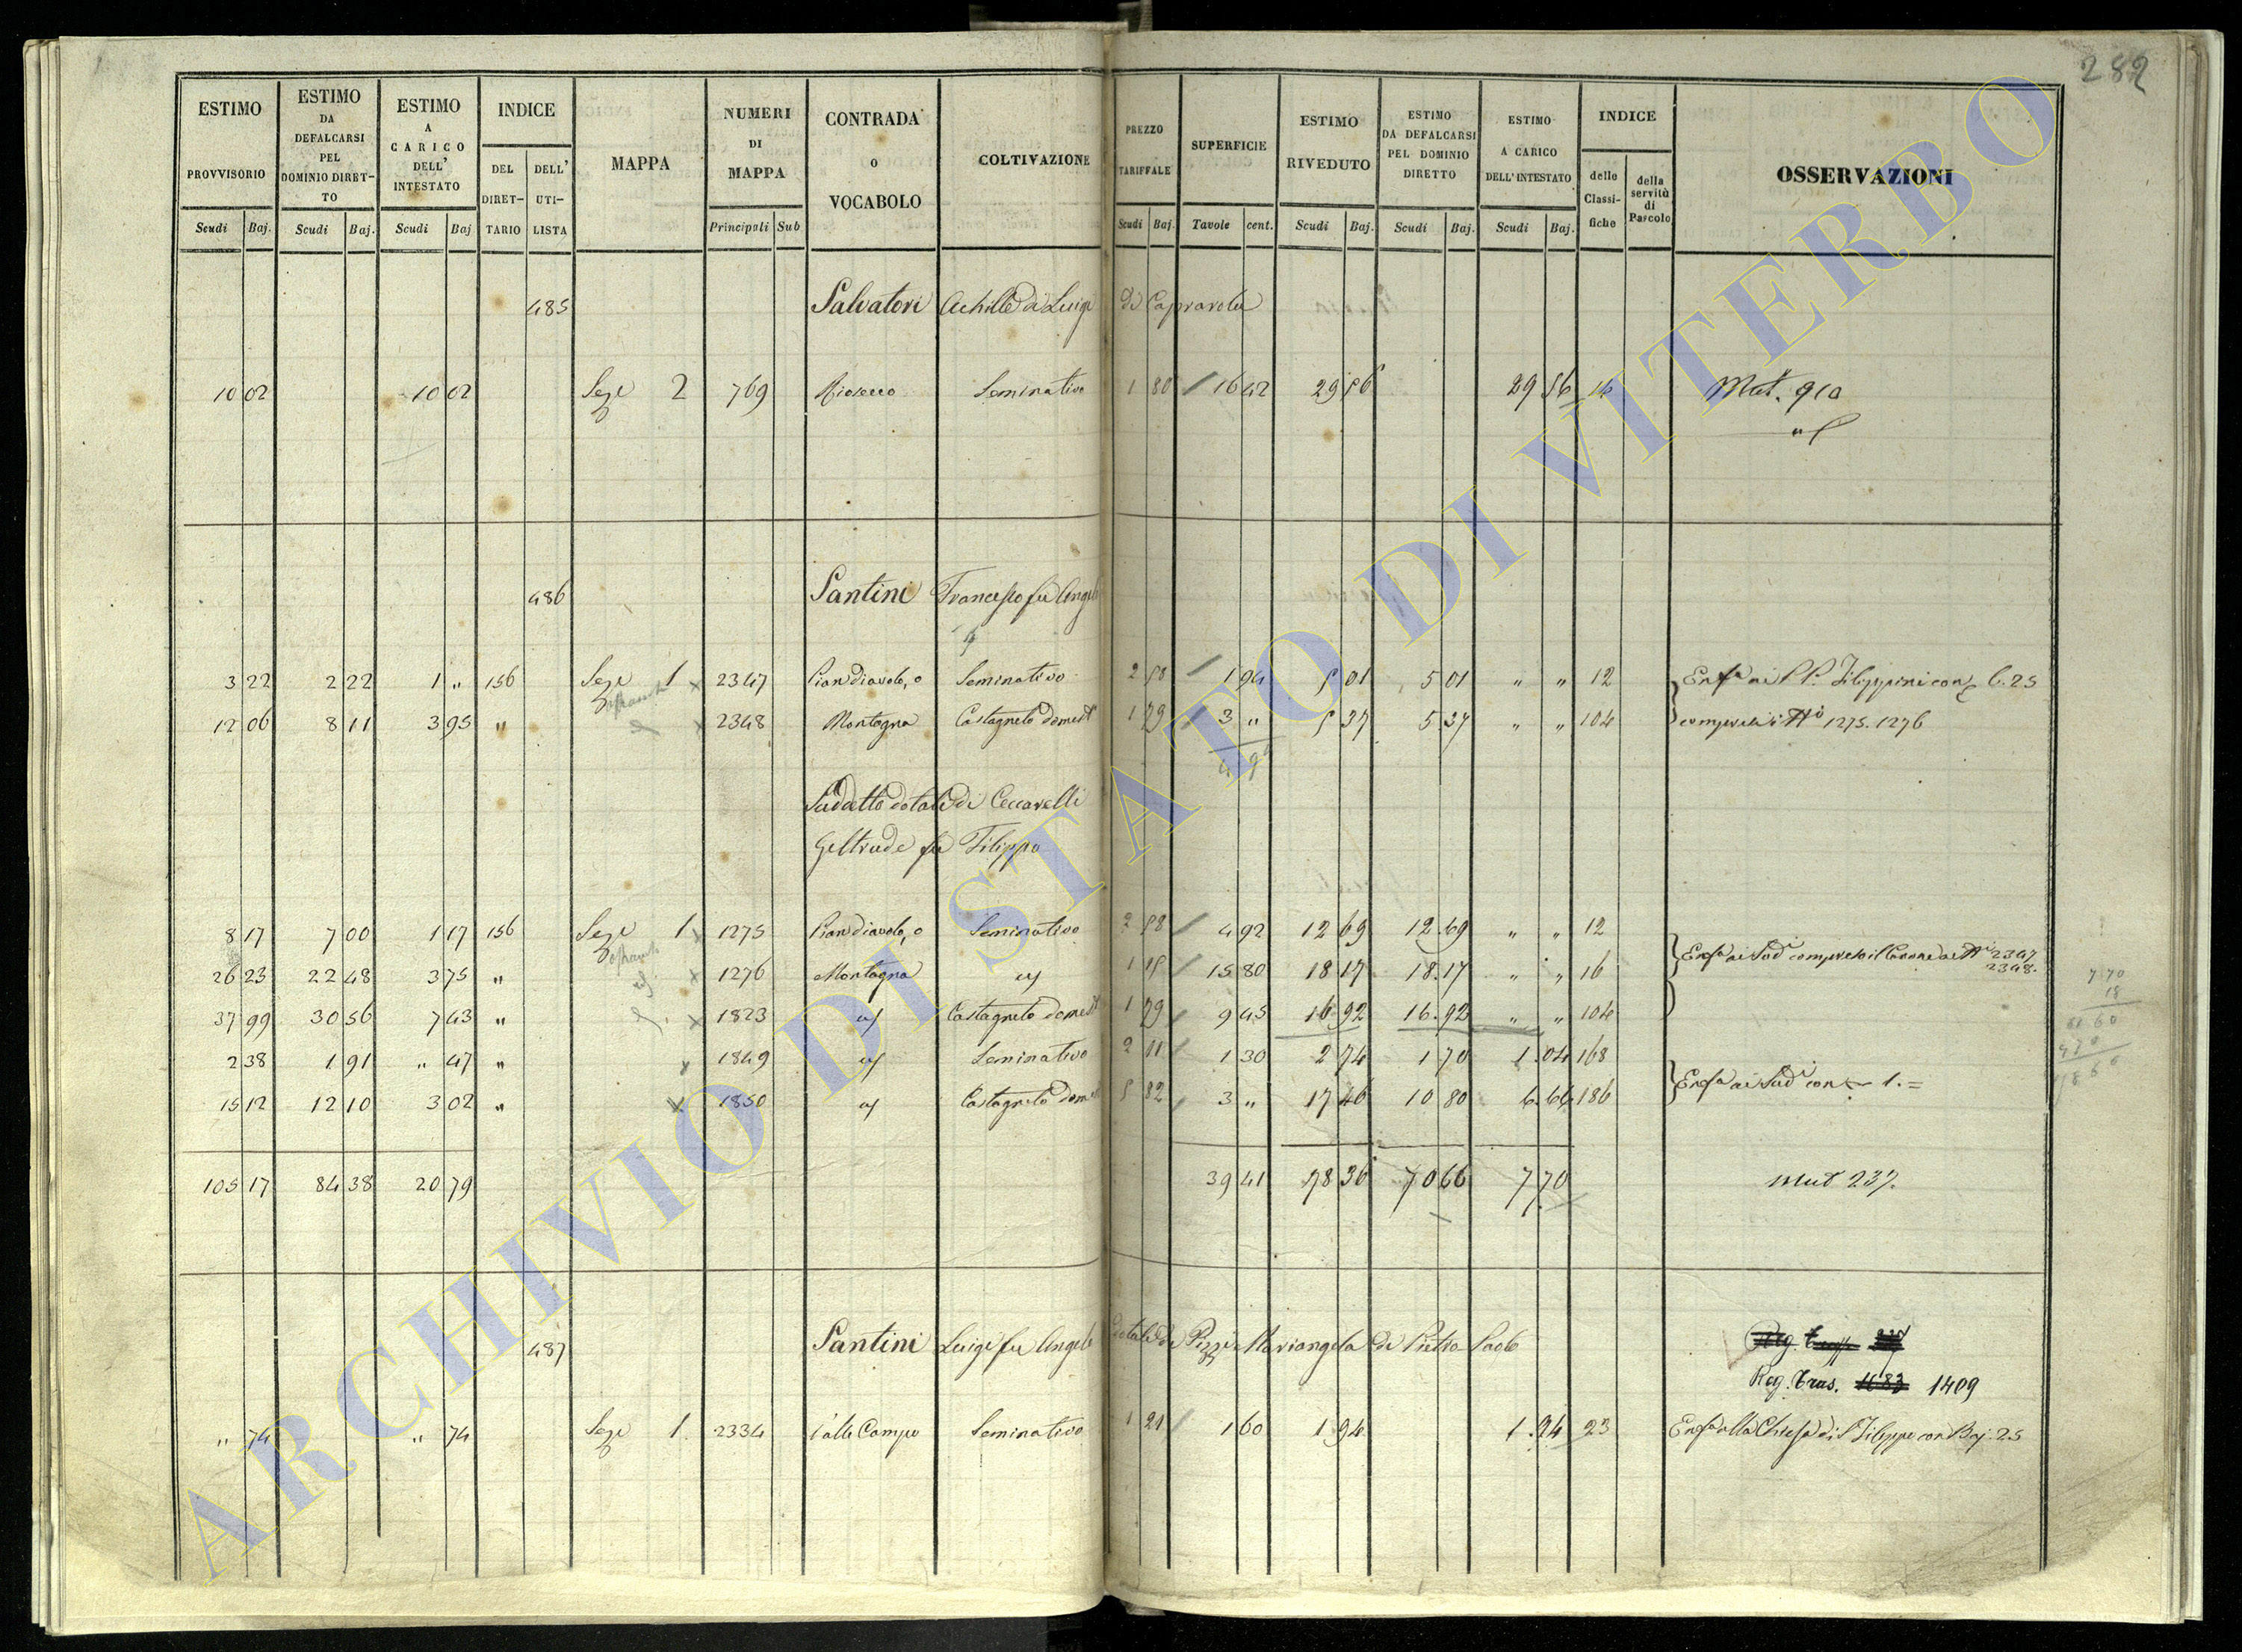 282
ESTIMO PROVVISORIO | ESTIMO DA DEFALCARSI PEL DOMINIO DIRET-TO | ESTIMO A CARICO DELL' INTESTATO | INDICE | MAPPA | NUMERI DI MAPPA | CONTRADA o VOCABOLO | COLTIVAZIONE | PREZZO TARIFFALE | SUPERFICIE | ESTIMO RIVEDUTO | ESTIMO DA DEFALCARSI PEL DOMINIO DIRETTO | ESTIMO A CARICO DELL'INTESTATO | INDICE | OSSERVAZIONI
DEL DIRET-TARIO | DELL' UTI-LISTA | delle Classi-fiche | della servitù di Pascolo
Scudi | Baj. | Scudi | Baj. | Scudi | Baj | Principali | Sub | Scudi | Baj. | Tavole | cent. | Scudi | Baj. | Scudi | Baj. | Scudi | Baj.
485 Salvatori Achille di Luigi di Caprarola
10 02 | 10 02 | Seze 2 | 769 | Riosecco | Seminativo | 1 80 | 16 42 | 29 56 | 29 56 | 16 | Mut. 910
486 Santini Francesco fu Angelo
3 22 | 2 22 | 1 " | 156 | Seze 1 | 2347 | Piandiavolo, o | Seminativo | 2 58 | 1 94 | 5 01 | 5 01 | " " | 12 | Enfa ai PP. Filippini con b. 25
12 06 | 8 11 | 3 95 | " | 2348 | Montagna | Castagneto domest | 1 79 | 3 " | 5 37 | 5 37 | " " | 104 | compresi i Ni 1275. 1276
Suddetto dotale di Ceccarelli
Geltrude fu Filippo
8 17 | 7 00 | 1 17 | 156 | Seze 1 | 1275 | Piandiavolo, o | Seminativo | 2 58 | 4 92 | 12 69 | 12.69 | " " | 12
26 23 | 22 48 | 3 75 | " | 1276 | Montagna | 1 15 | 15 80 | 18 17 | 18.17 | " " | 16 | Enfa ai Sudi compreso il Canone ai Ni 2347 2348.
37 99 | 30 56 | 7 43 | " | 1823 | Castagneto domest | 1 79 | 9 45 | 16 92 | 16.92 | " " | 104
2 38 | 1 91 | " 47 | " | 1849 | Seminativo | 2 11 | 1 30 | 2 74 | 1 70 | 1.04 | 168
15 12 | 12 10 | 3 02 | " | 1850 | Castagneto domest | 5 82 | 3 " | 17 46 | 10 80 | 6.66 | 186 | Enfa ai Sudi con 1.=
105 17 | 84 38 | 20 79 | 39 41 | 78 36 | 70 66 | 7 70 | Mut 237.
487 Santini Luigi fu Angelo dotale di Pizzi Mariangela di Pietro Paolo
Reg. Tras. 1409
" 74 | " 74 | Seze 1. | 2334 | Valle Campo | Seminativo | 1 21 | 1 60 | 1 94 | 1.94 | 23 | Enfa alla Chiesa di S Filippo con Baj. 25
ARCHIVIO DI STATO DI VITERBO